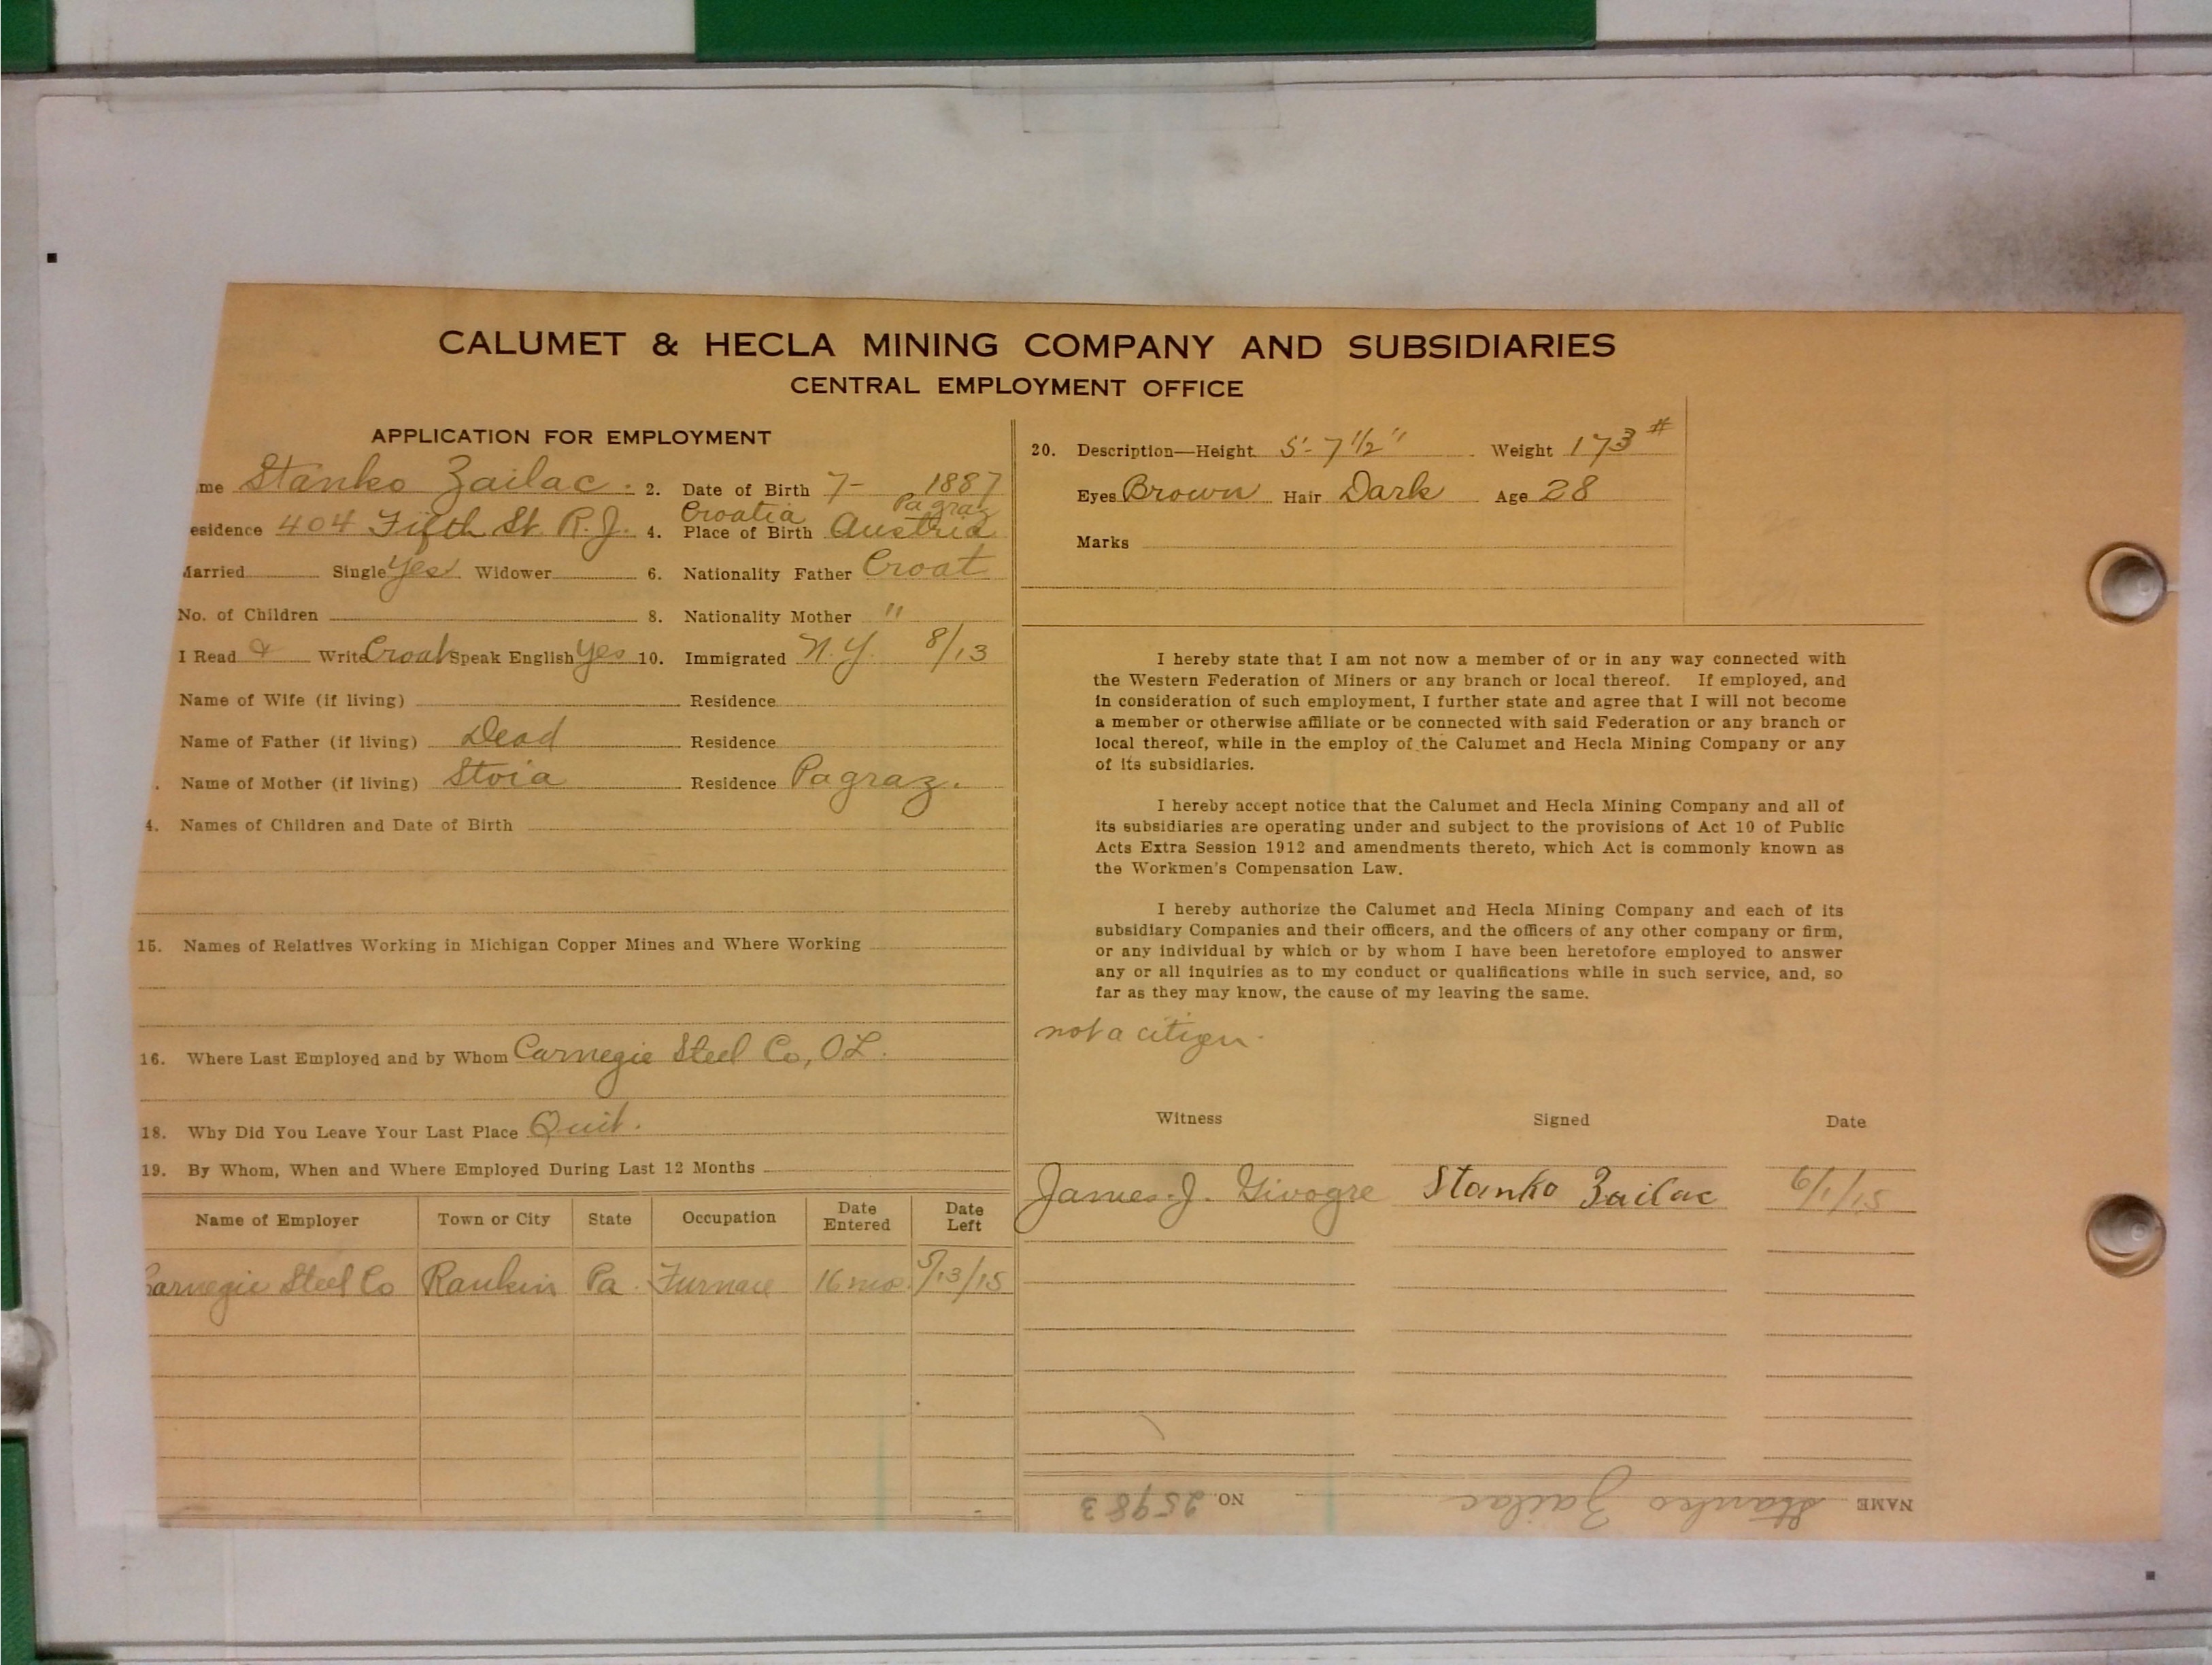 CALUMET & HECLA MINING COMPANY AND SUBSIDIARIES
CENTRAL EMPLOYMENT OFFICE
APPLICATION FOR EMPLOYMENT
me Stanko Zailac. 2. Date of Birth 7- 1887
Croatia Pagraz
esidence 404 Fifth St. R.J. 4. Place of Birth Austria
Married Single Yes Widower 6. Nationality Father Croat
No. of Children 8. Nationality Mother "
I Read & Write Croat Speak English Yes 10. Immigrated N.Y. 8/13
Name of Wife (if living) Residence
Name of Father (if living) Dead Residence
. Name of Mother (if living) Stoia Residence Pagraz.
4. Names of Children and Date of Birth
15. Names of Relatives Working in Michigan Copper Mines and Where Working
16. Where Last Employed and by Whom Carnegie Steel Co, OL.
18. Why Did You Leave Your Last Place Quit.
19. By Whom, When and Where Employed During Last 12 Months
Name of Employer Town or City State Occupation Date Entered Date Left
Carnegie Steel Co Rankin Pa. Furnace 16 mos. 5/13/15
20. Description—Height 5'-7 1/2" Weight 173#
Eyes Brown Hair Dark Age 28
Marks
I hereby state that I am not now a member of or in any way connected with
the Western Federation of Miners or any branch or local thereof. If employed, and
in consideration of such employment, I further state and agree that I will not become
a member or otherwise affiliate or be connected with said Federation or any branch or
local thereof, while in the employ of the Calumet and Hecla Mining Company or any
of its subsidiaries.
I hereby accept notice that the Calumet and Hecla Mining Company and all of
its subsidiaries are operating under and subject to the provisions of Act 10 of Public
Acts Extra Session 1912 and amendments thereto, which Act is commonly known as
the Workmen's Compensation Law.
I hereby authorize the Calumet and Hecla Mining Company and each of its
subsidiary Companies and their officers, and the officers of any other company or firm,
or any individual by which or by whom I have been heretofore employed to answer
any or all inquiries as to my conduct or qualifications while in such service, and, so
far as they may know, the cause of my leaving the same.
not a citizen.
Witness Signed Date
James J. Stanko Zailac 6/1/15
NAME Stanko Zailac NO. 25983